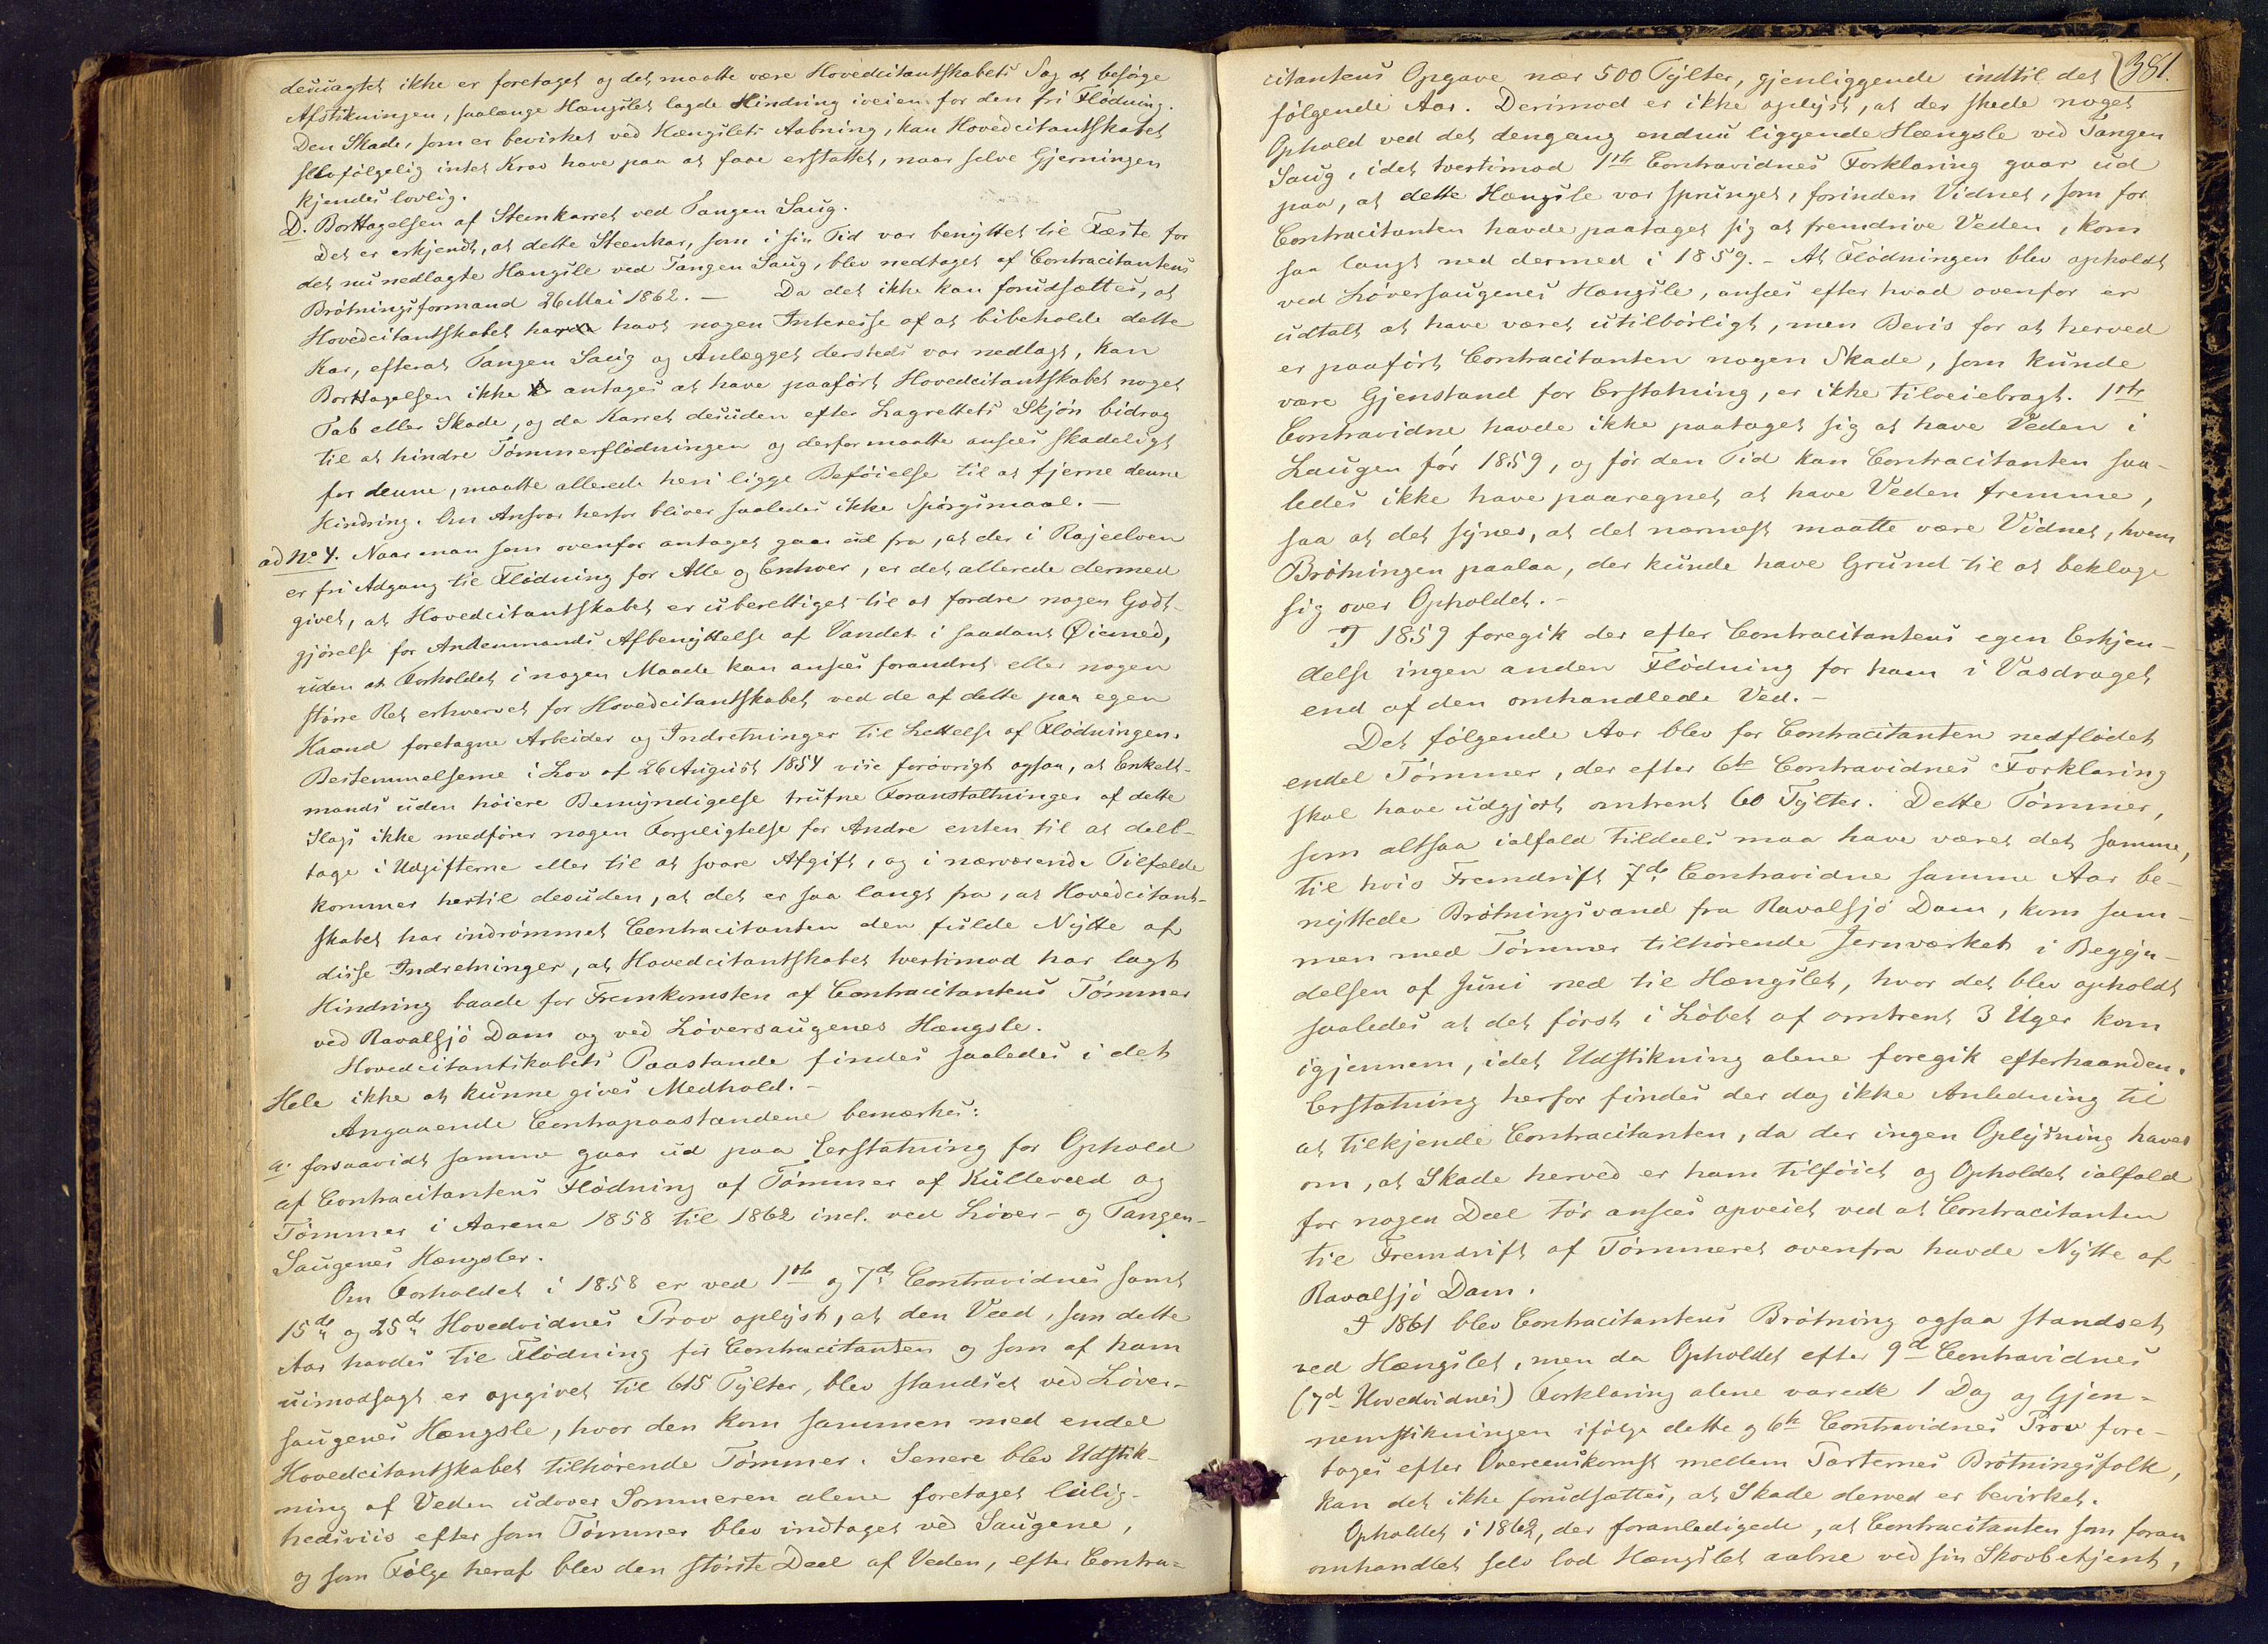 desuagtet ikke er foretaget og det maatte være Hovedcitantskabets Sag at besørge
Afstikningen, saalænge Hængslet lagde Hindring iveien for den fri Flödning.
Den Skade, som er bevirket ved Hængslets Aabning, kan Hovedcitantskabet
selvfölgelig intet Krav have paa at faae erstattet, naar selve Gjerningen
kjendes lovlig.
D. Borttagelsen af Steenkarret ved Tangen Saug.
Det er erkjendt, at dette Steenkar, som i sin Tid var benyttet til Fæste for
det nu nedlagte Hængsle ved Tangen Saug, blev nedtaget af Contracitantens
Brötningsformand 26 Mai 1862. — Da det ikke kan forudsættes, at
Hovedcitantskabet har havt nogen Interesse af at bibeholde dette
Kar, efterat Tangen Saug og Anlægget dersteds var nedlagt, kan
Borttagelsen ikke antages at have paaført Hovedcitantskabet noget
Tab eller Skade, og da Karret desuden efter Lagrettets Skjön bidrog
til at hindre Tömmerflödningen og derfor maatte ansees skadeligt
for denne, maatte allerede heri ligge Beföielse til at fjerne denne
Hindring. Om Ansvar herfor bliver saaledes ikke Spörgsmaal. —
ad No 4. Naar man som ovenfor antaget gaar ud fra, at der i Rajeelven
er fri Adgang til Flödning for Alle og Enhver, er det allerede dermed
givet, at Hovedcitantskabet er uberettiget til at fordre nogen Godt-
gjörelse for Andenmands Afbenyttelse af Vandet i saadant Øiemed,
uden at Forholdet i nogen Maade kan ansees forandret eller nogen
större Ret erhvervet for Hovedcitantskabet ved de af dette paa egen
Haand foretagne Arbeider og Indretninger til Lettelse af Flödningen.
Bestemmelserne i Lov af 26 August 1854 vise forövrigt ogsaa, at Enkelt-
mands uden höiere Bemyndigelse trufne Foranstaltninger af dette
Slags ikke medförer nogen Forpligtelse for Andre enten til at delt-
tage i Udgifterne eller til at svare Afgift, og i nærværende Tilfælde
kommer hertil desuden, at det er saa langt fra, at Hovedcitant-
skabet har indrömmet Contracitanten den fulde Nytte af
disse Indretninger, at Hovedcitantskabet tvertimod har lagt
Hindring baade for Fremkomsten af Contracitantens Tömmer
ved Ravalsjö Dam og ved Löversaugenes Hængsle.
Hovedcitantskabets Paastande findes saaledes i det
Hele ikke at kunne gives Medhold. —
Angaaende Contrapaastandene bemærkes:
a. forsaavidt samme gaar ud paa Erstatning for Ophold
af Contracitantens Flödning af Tömmer af Kulleveed og
Tömmer i Aarene 1858 til 1862 incl. ved Löver- og Tangen-
Saugenes Hængsler.
Om Forholdet i 1858 er ved 1ste og 7de Contravidnes samt
15de og 25de Hovedvidnes Prov oplyst, at den Veed, som dette
Aar havdes til Flödning for Contracitanten og som af ham
uimodsagt er opgivet til 615 Tylter, blev standset ved Löver-
saugenes Hængsle, hvor den kom sammen med endel
Hovedcitantskabet tilhörende Tömmer. Senere blev Udstik-
ning af Veden udover Sommeren alene foretaget leilig-
hedsviis efter som Tömmer blev indtaget ved Saugene,
og som Fölge heraf blev den störste Deel af Veden, efter Contra-
381.
citantens Opgave nær 500 Tylter, gjenliggende indtil det
fölgende Aar. Derimod er ikke oplyst, at der skede noget
Ophold ved det dengang endnu liggende Hængsle ved Tangen
Saug, idet tvertimod 1ste Contravidnes Forklaring gaar ud
paa, at dette Hængsle var sprunget, forinden Vidnet, som for
Contracitanten havde paataget sig at fremdrive Veden, kom
saa langt ned dermed i 1859. — At Flödningen blev opholdt
ved Löversaugenes Hængsle, ansees efter hvad ovenfor er
udtalt at have været utilbörligt, men Bevis for at herved
er paafört Contracitanten nogen Skade, som kunde
være Gjenstand for Erstatning, er ikke tilveiebragt. 1ste
Contravidne havde ikke paataget sig at have Veden i
Laugen för 1859, og för den Tid kan Contracitanten saa-
ledes ikke have paaregnet at have Veden fremme,
saa at det synes, at det nærmest maatte være Vidnet, hvem
Brötningen paalaa, der kunde have Grund til at beklage
sig over Opholdet. —
I 1859 foregik der efter Contracitantens egen Erkjen-
delse ingen anden Flödning for ham i Vasdraget
end af den omhandlede Ved. —
Det fölgende Aar blev for Contracitanten nedflödet
endel Tömmer, der efter 6te Contravidnes Forklaring
skal have udgjort omtrent 60 Tylter. Dette Tömmer,
som altsaa ialfald tildeels maa have været det samme,
til hvis Fremdrift 7de Contravidne samme Aar be-
nyttede Brötningsvand fra Ravalsjö Dam, kom sam-
men med Tömmer tilhörende Jernværket i Begyn-
delsen af Juni ned til Hængslet, hvor det blev opholdt
saaledes at det först i Löbet af omtrent 3 Uger kom
igjennem, idet Udstikning alene foregik efterhaanden.
Erstatning herfor findes der dog ikke Anledning til
at tilkjende Contracitanten, da der ingen Oplysning haves
om, at Skade herved er ham tilföiet og Opholdet ialfald
for nogen Deel tör ansees opveiet ved at Contracitanten
til Fremdrift af Tömmeret ovenfra havde Nytte af
Ravalsjö Dam.
I 1861 blev Contracitantens Brötning ogsaa standset
ved Hængslet, men da Opholdet efter 9de Contravidnes
(7de Hovedvidnes) Forklaring alene varede 1 Dag og Gjen-
nemstikningen ifölge dette og 6te Contravidnes Prov fore-
toges efter Overeenskomst mellem Parternes Brötningsfolk,
kan det ikke forudsættes, at Skade derved er bevirket.
Opholdet i 1862, der foranledigede, at Contracitanten som foran
omhandlet selv lod Hængslet aabne ved sin Skovbetjent,